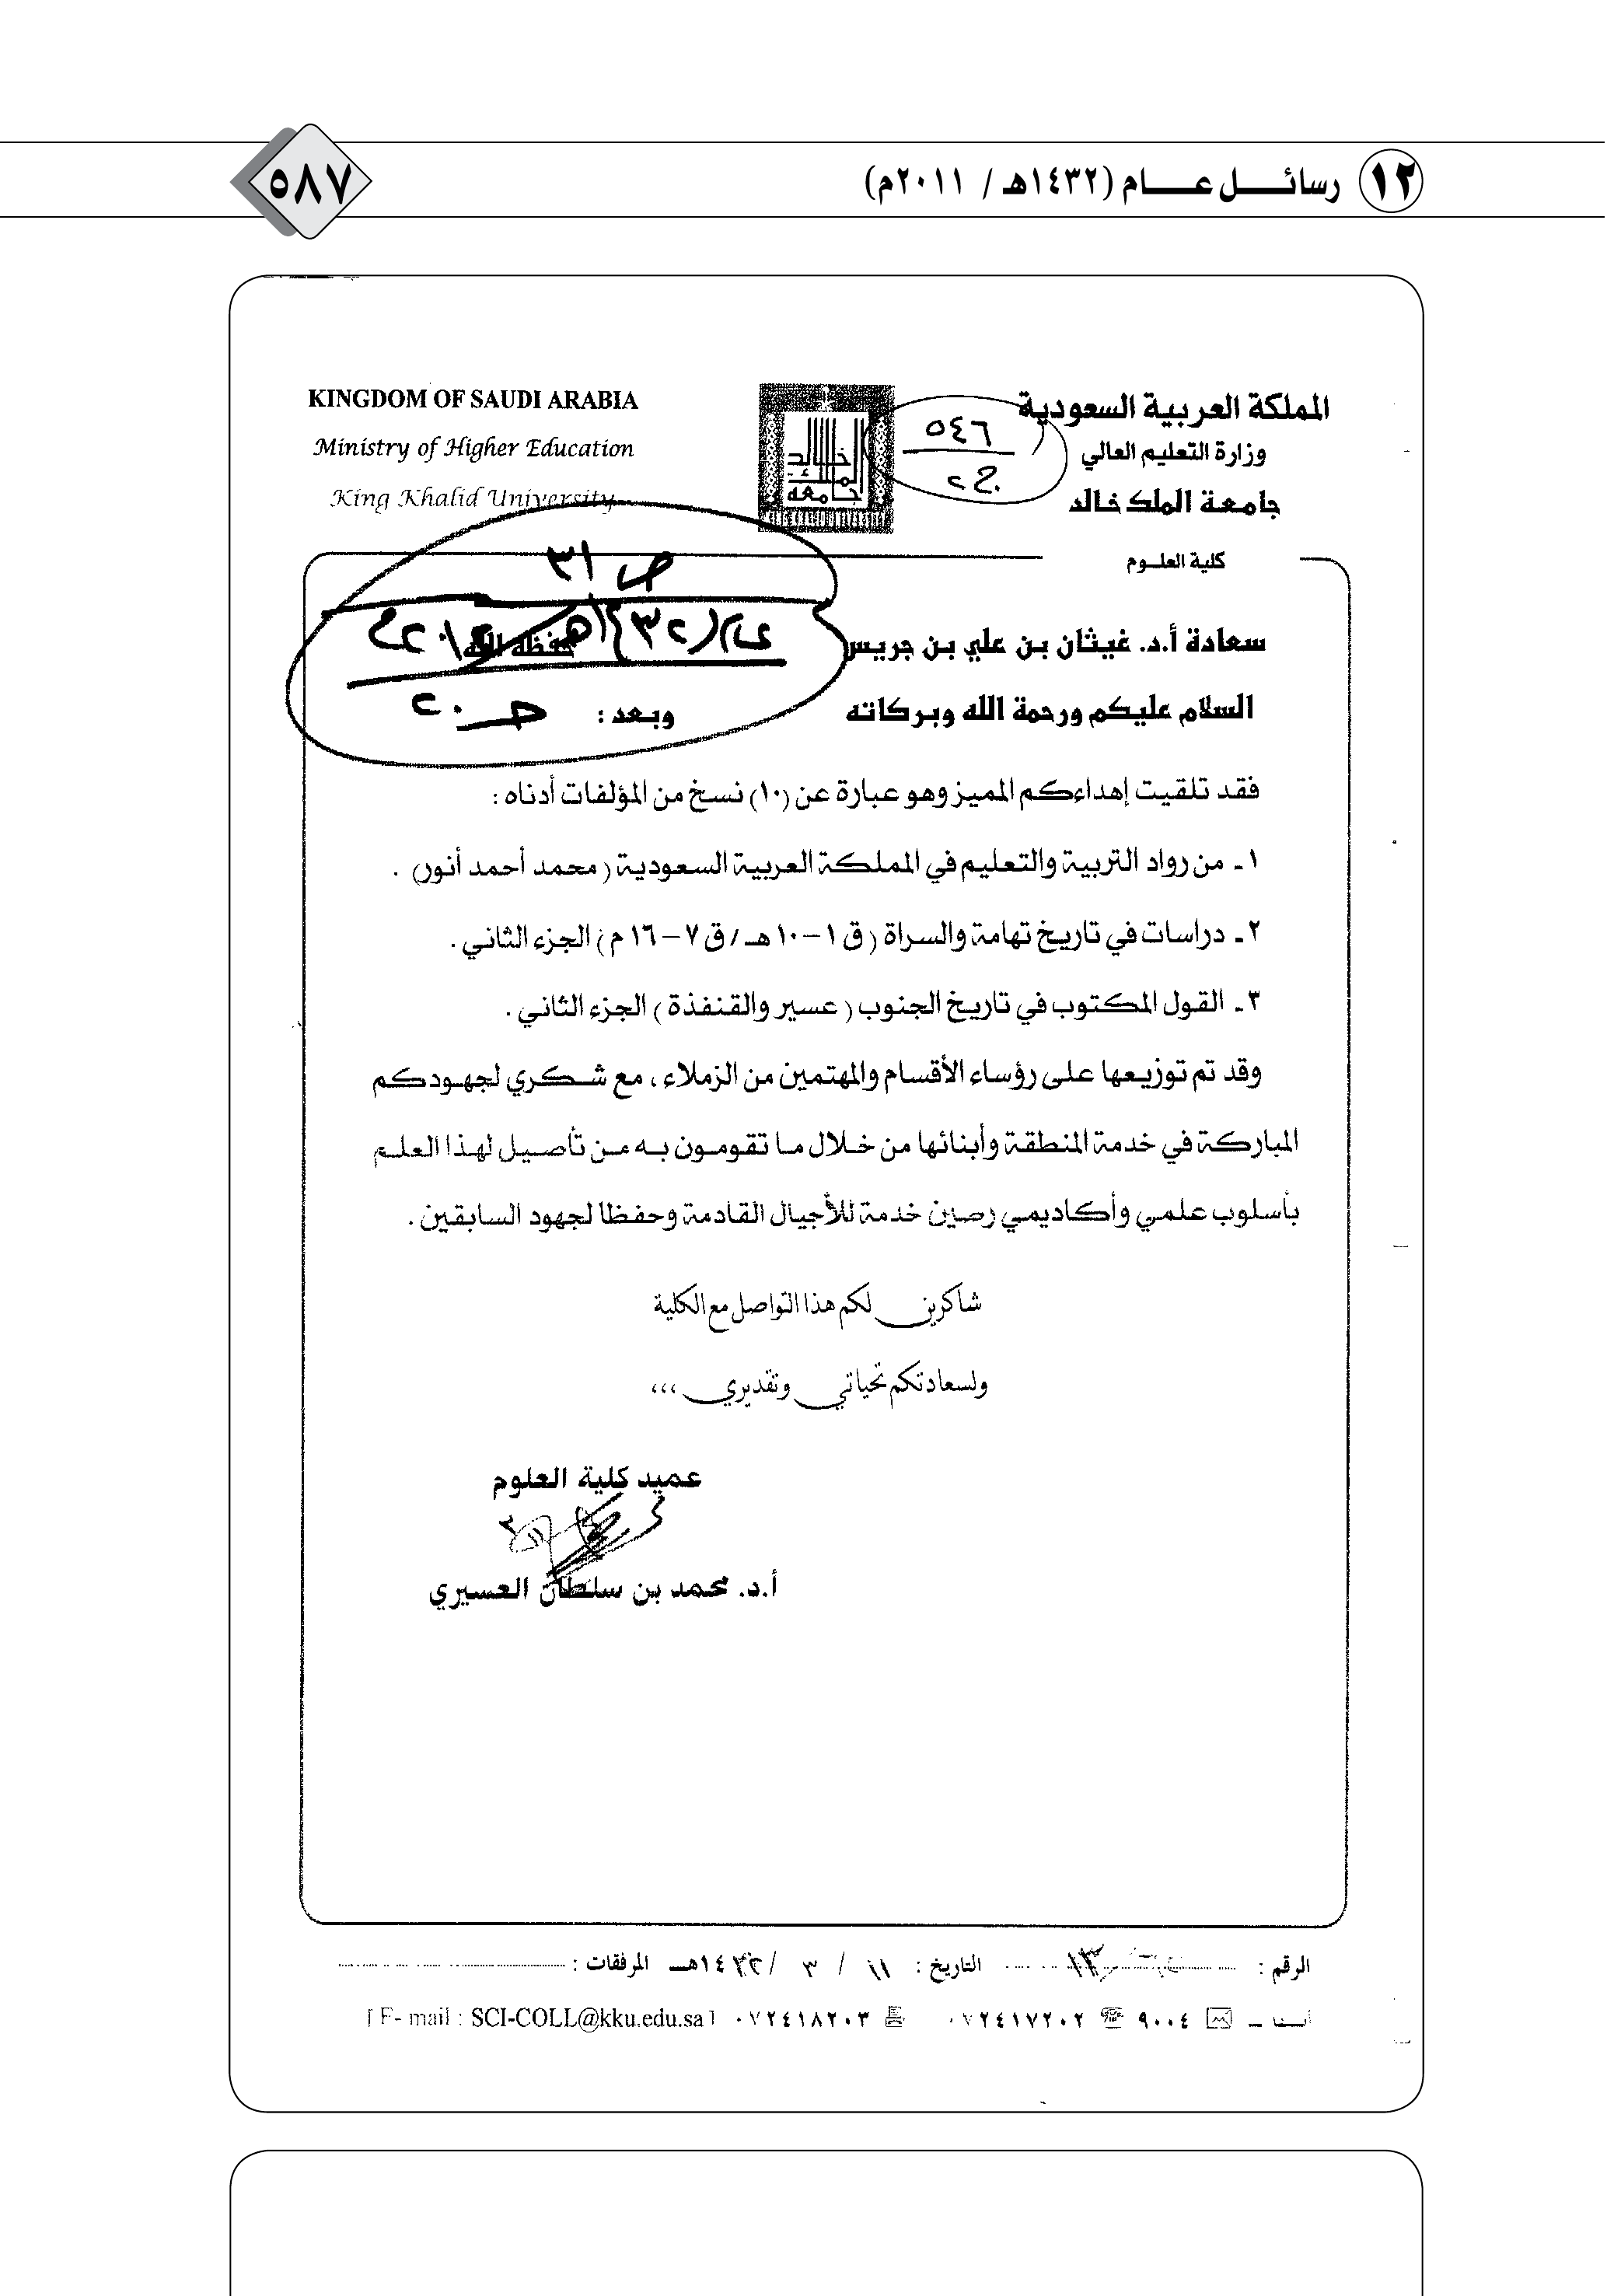 ١٢ رسائل عام (١٤٣٢هـ / ٢٠١١م)
٥٨٧
المملكة العربية السعودية
وزارة التعليم العالي
جامعة الملك خالد
كلية العلوم
KINGDOM OF SAUDI ARABIA
Ministry of Higher Education
King Khalid University
جامعة الملك خالد
٥٤٦
ص ٣١
سعادة أ.د. غيثان بن علي بن جريس حفظه الله
السلام عليكم ورحمة الله وبركاته وبعد :
فقد تلقيت إهداءكم المميز وهو عبارة عن (١٠) نسخ من المؤلفات أدناه :
١ـ من رواد التربية والتعليم في المملكة العربية السعودية (محمد أحمد أنور) .
٢ـ دراسات في تاريخ تهامة والسراة (ق ١ – ١٠ هـ / ق ٧ – ١٦ م) الجزء الثاني .
٣ـ القول المكتوب في تاريخ الجنوب (عسير والقنفذة) الجزء الثاني .
وقد تم توزيعها على رؤساء الأقسام والمهتمين من الزملاء ، مع شكري لجهودكم
المباركة في خدمة المنطقة وأبنائها من خلال ما تقومون به من تأصيل لهذا العلم
بأسلوب علمي وأكاديمي رصين خدمة للأجيال القادمة وحفظا لجهود السابقين .
شاكرين لكم هذا التواصل مع الكلية
ولسعادتكم تحياتي وتقديري ،،،
عميد كلية العلوم
أ.د. محمد بن سلطان العسيري
الرقم : التاريخ : ١١ / ٣ / ١٤٣٢هـ المرفقات :
أبها ـ ٩٠٠٤ ٠٧٢٤١٧٢٠٢ ٠٧٢٤١٨٢٠٣ [E- mail : SCI-COLL@kku.edu.sa]